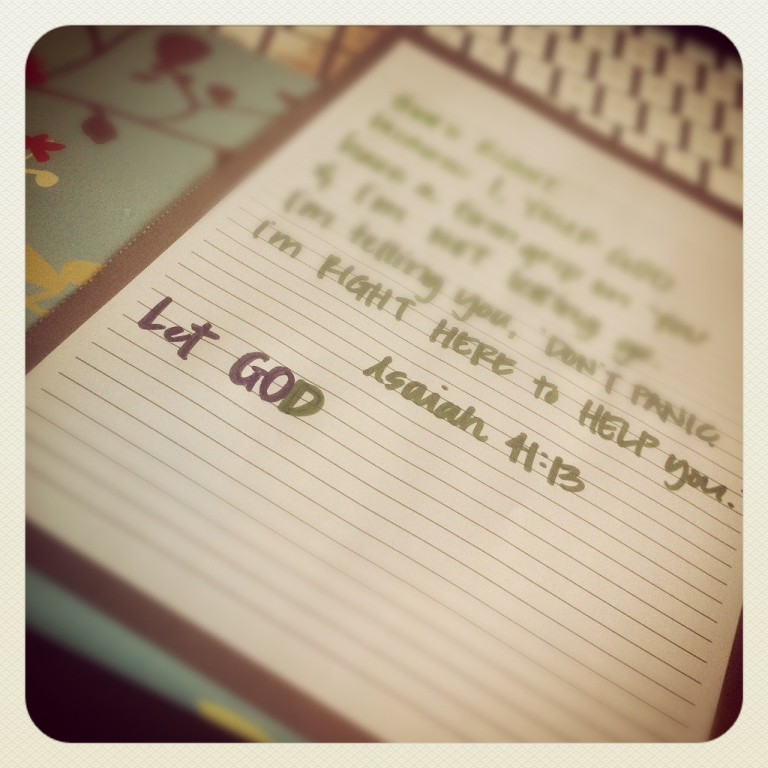 I, YOUR GOD
have a firm grip on you
& I'm NOT letting go.
I'm telling you, 'DON'T PANIC
I'm RIGHT HERE to HELP you.'
Isaiah 41:13
Let GOD